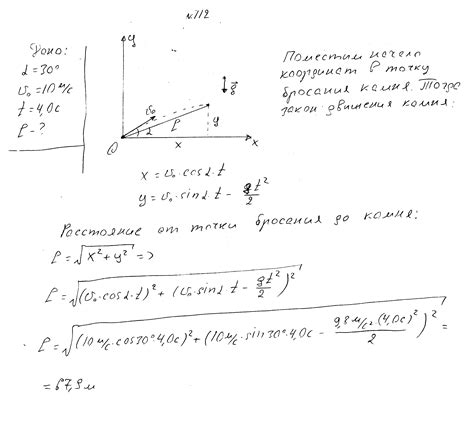 №112
Дано:
α = 30°
v₀ = 10 м/с
t = 4,0 с
ρ - ?
y
v₀
α
ρ
y
g
O
x
x
Поместим начало
координат в точку
бросания камня. Тогда
закон движения камня:
x = v₀ · cosα · t
y = v₀ · sinα · t - gt²/2
Расстояние от точки бросания до камня:
ρ = √(x² + y²) =>
ρ = √((v₀ · cosα · t)² + (v₀ · sinα · t - gt²/2)²)
ρ = √((10 м/с · cos30° · 4,0с)² + (10 м/с · sin30° · 4,0с - 9,8 м/с² · (4,0с)²/2)²) =
= 67,9 м